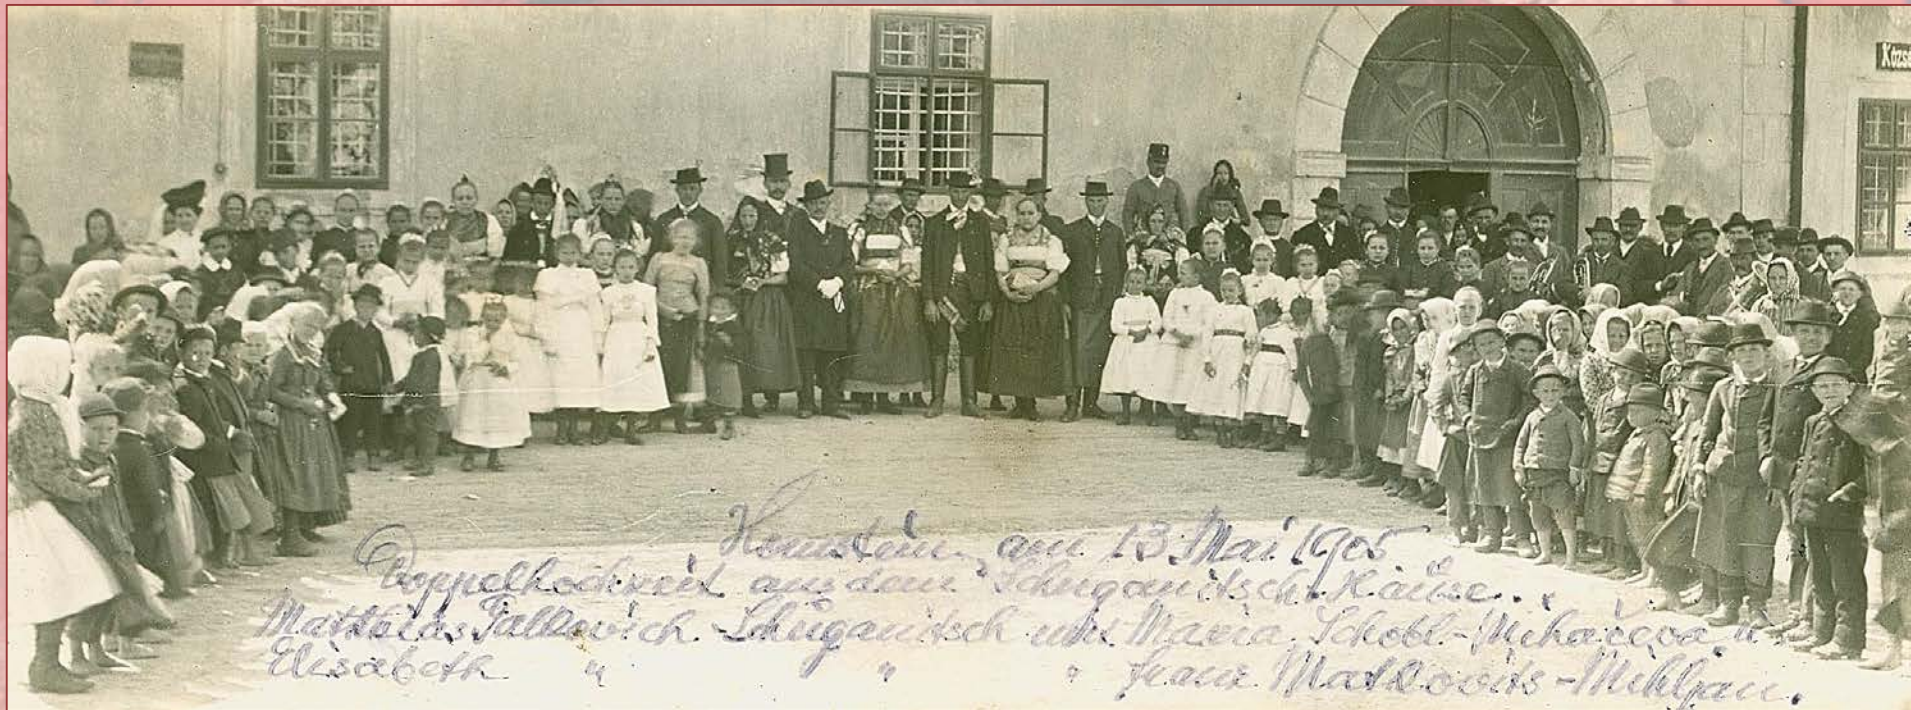 Közsé
Hornstein, am 13 Mai 1905
Doppelhochzeit aus dem Schuganitsch-Hause.
Matthias Palkovich-Schuganitsch und Maria Schobl-Mihačeva, u.
Elisabeth " " " Franz Matkovits-Mihljan.